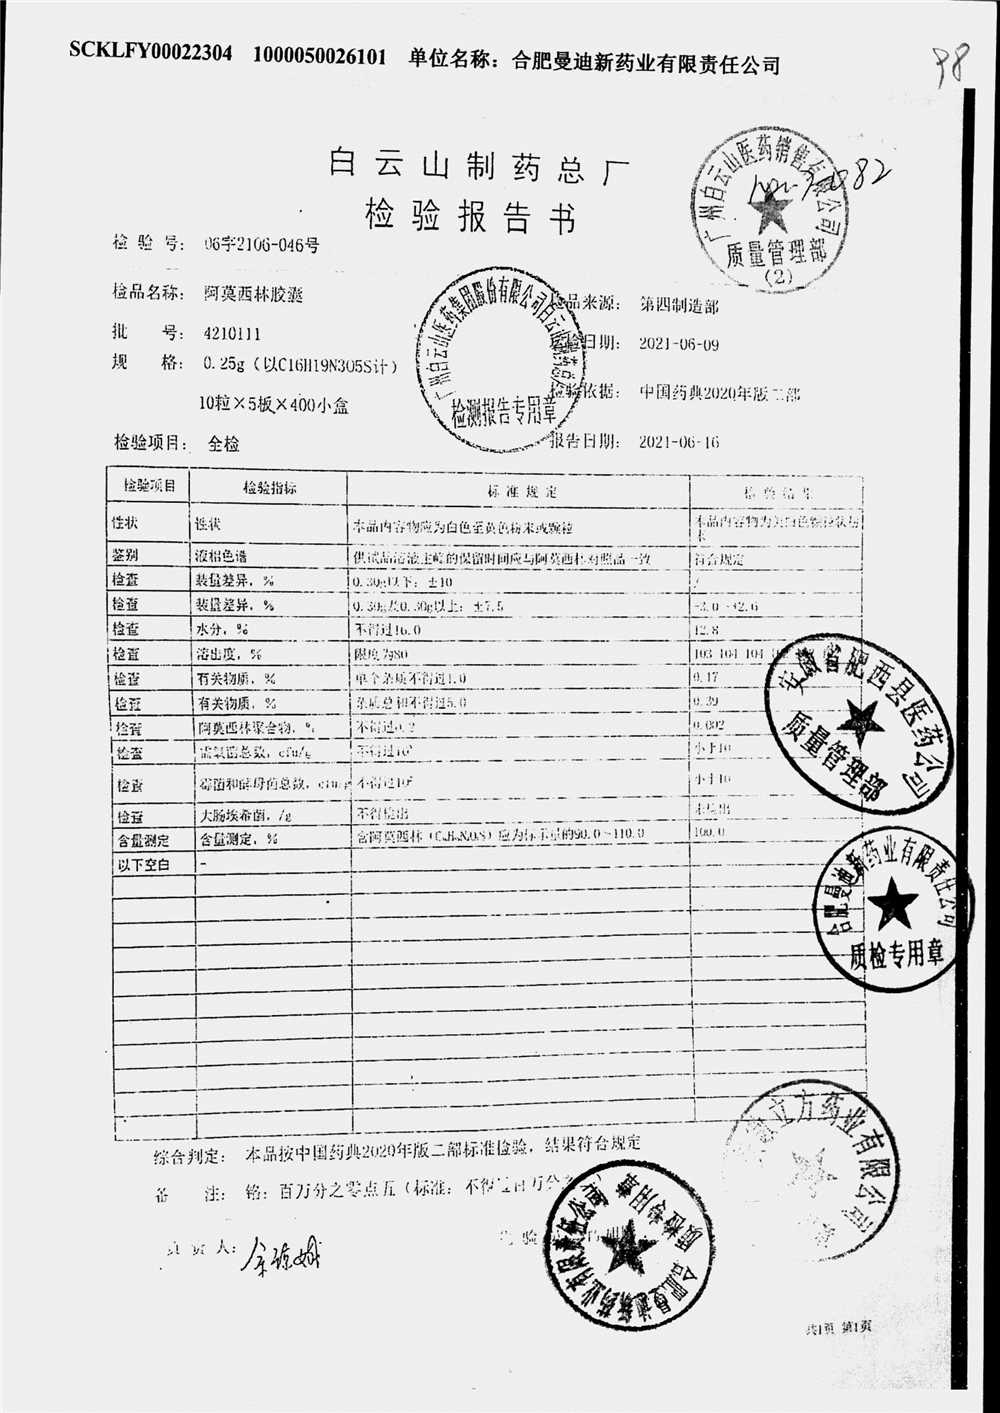 SCKLFY00022304 1000050026101 单位名称：合肥曼迪新药业有限责任公司
98
白云山制药总厂
检验报告书
广州白云山医药销售有限公司
质量管理部
(2)
检 验 号： 06字2106-046号
检品名称： 阿莫西林胶囊
品来源： 第四制造部
批 号： 4210111
检日期： 2021-06-09
规 格： 0.25g（以C16H19N3O5S计）
检验依据： 中国药典2020年版二部
10粒×5板×400小盒
检验项目： 全检
报告日期： 2021-06-16
广州白云山医药集团股份有限公司白云山制药总厂
检测报告专用章
检验项目 检验指标 标准规定 检验结果
性状 性状 本品内容物应为白色至黄色粉末或颗粒 本品内容物为类白色颗粒状粉末
鉴别 液相色谱 供试品溶液主峰的保留时间应与阿莫西林对照品一致 符合规定
检查 装量差异，% 0.30g以下：±10 /
检查 装量差异，% 0.30g及0.30g以上：±7.5 -3.0
检查 水分，% 不得过16.0 12.8
检查 溶出度，% 限度为80 103 104 104
检查 有关物质，% 单个杂质不得过1.0 0.17
检查 有关物质，% 杂质总和不得过5.0 0.39
检查 阿莫西林聚合物，% 不得过0.2 0.002
检查 需氧菌总数，cfu/g 不得过10³ 小于10
检查 霉菌和酵母菌总数，cfu/g 不得过10² 小于10
检查 大肠埃希菌，/g 不得检出 未检出
含量测定 含量测定，% 含阿莫西林（C₁₆H₁₉N₃O₅S）应为标示量的90.0~110.0 100.0
以下空白 -
安徽省肥西县医药公司
质量管理部
合肥曼迪新药业有限责任公司
质检专用章
综合判定： 本品按中国药典2020年版二部标准检验，结果符合规定
备 注： 铬：百万分之零点五（标准：不得过百万分之
负 责 人：
立方药业有限公司
合肥曼迪新药业有限责任公司
质检专用章
共1页 第1页